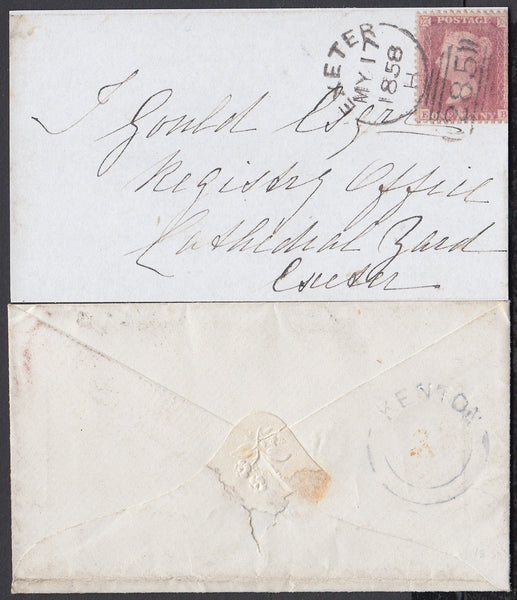 POSTAGE
EXETER
MY 17
1858
H
285
E B
J Gould Esqre
Registry Office
Cathedral Yard
Exeter
KENTON